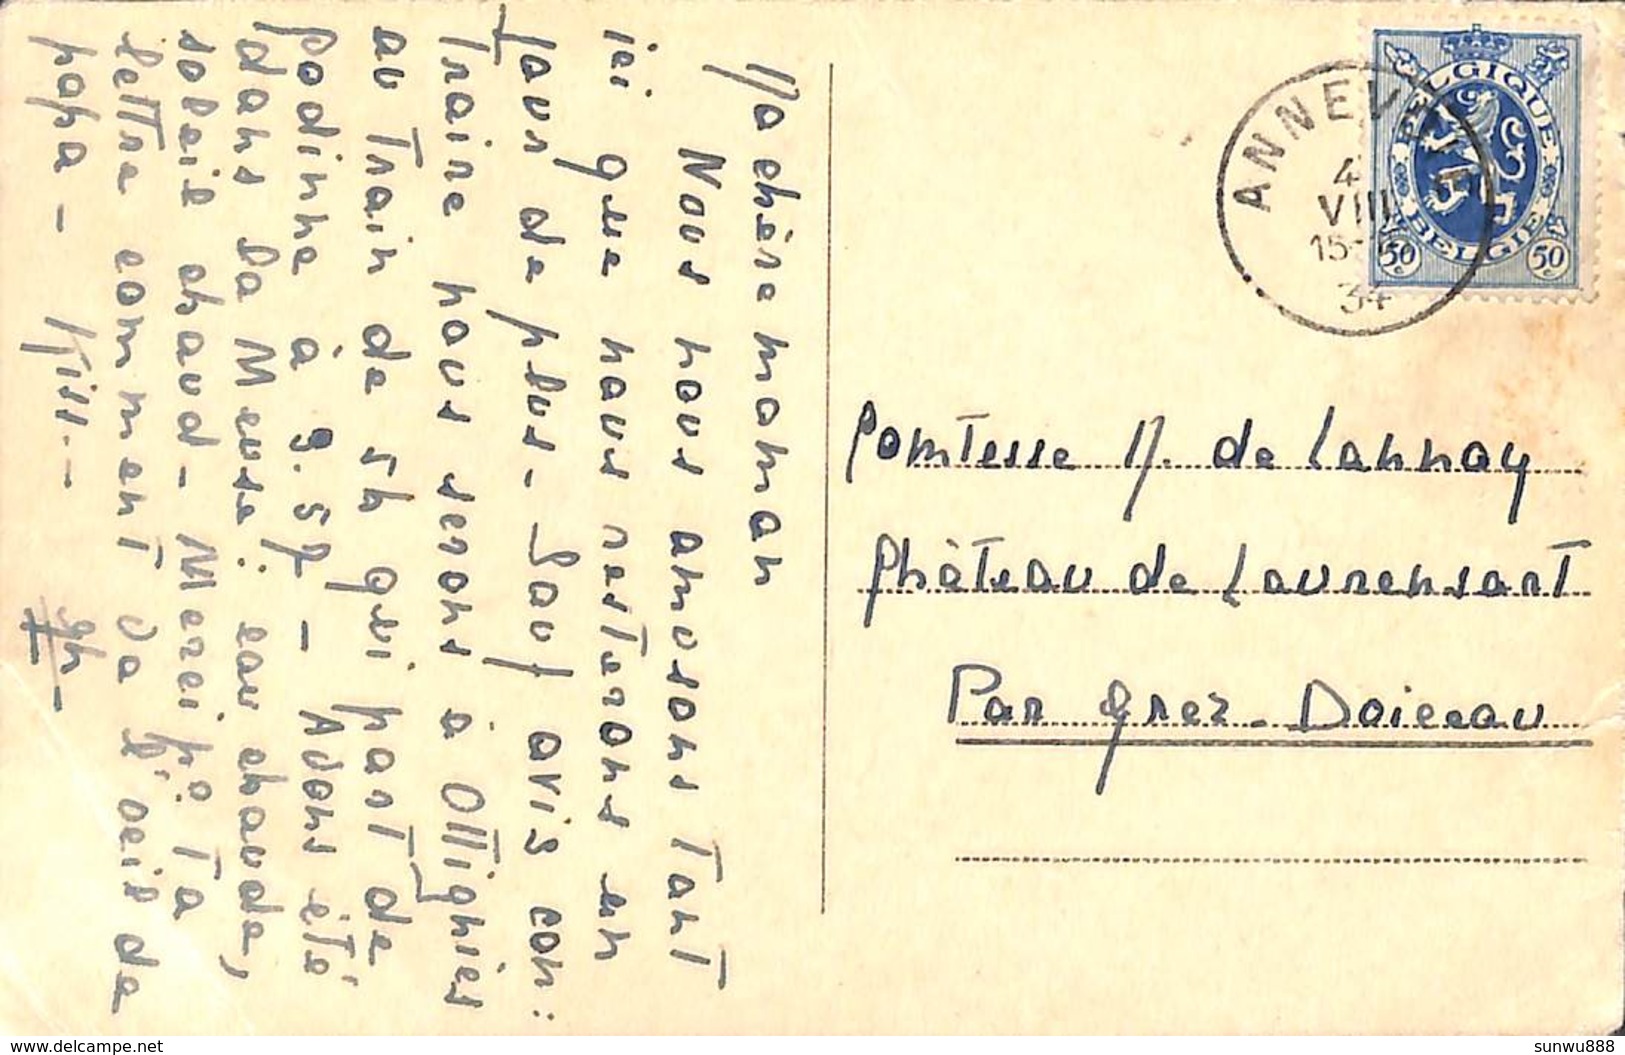 Ma chère maman
Nous nous amusons tant
ici que nous resterons un
jour de plus - Sauf avis con:
traire nous serons à Ottignies
au train de 5h qui part de
Godinne à 3.57 - Avons été
dans la Meuse: eau chaude,
soleil chaud - Merci pr ta
lettre comment va l'oeil de
papa - Kiss.-
gh-
BELGIQUE
BELGIË
50 c
50 c
4
VIII
15-
34
Comtesse M. de Lannoy
Château de Laurensart
Par Grez-Doiceau
delcampe.net
sunwu888